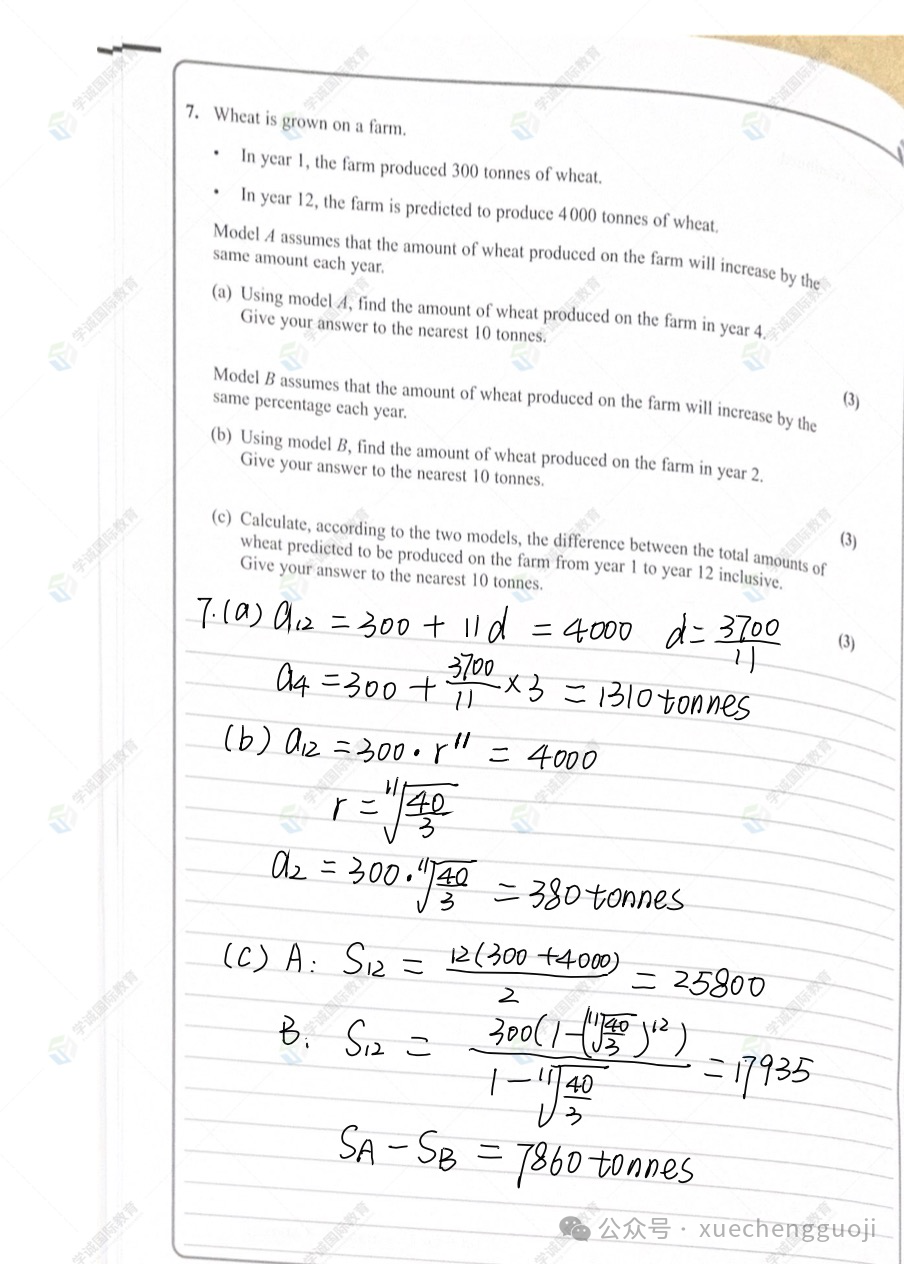 7. Wheat is grown on a farm.
• In year 1, the farm produced 300 tonnes of wheat.
• In year 12, the farm is predicted to produce 4000 tonnes of wheat.
Model A assumes that the amount of wheat produced on the farm will increase by the
same amount each year.
(a) Using model A, find the amount of wheat produced on the farm in year 4.
Give your answer to the nearest 10 tonnes.
(3)
Model B assumes that the amount of wheat produced on the farm will increase by the
same percentage each year.
(b) Using model B, find the amount of wheat produced on the farm in year 2.
Give your answer to the nearest 10 tonnes.
(3)
(c) Calculate, according to the two models, the difference between the total amounts of
wheat predicted to be produced on the farm from year 1 to year 12 inclusive.
Give your answer to the nearest 10 tonnes.
(3)
7.(a) a₁₂ = 300 + 11d = 4000 d = 3700/11
a₄ = 300 + 3700/11 × 3 = 1310 tonnes
(b) a₁₂ = 300 · r¹¹ = 4000
r = ¹¹√(40/3)
a₂ = 300 · ¹¹√(40/3) = 380 tonnes
(C) A: S₁₂ = 12(300 + 4000)/2 = 25800
B. S₁₂ = 300(1-(¹¹√(40/3))¹²)/(1-¹¹√(40/3)) = 17935
S_A - S_B = 7860 tonnes
学诚国际教育
公众号 · xuechengguoji